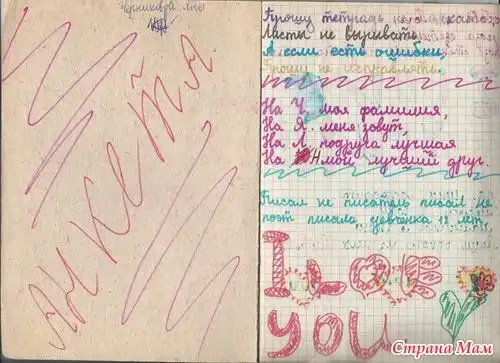 Анкета
Прошу тетрадь не
Листы не вырывать
А если есть ошибки,
Прошу не исправлять.
На Ч. моя фамилия,
На Я. меня зовут,
На Л. подруга лучшая
На Н мой лучший друг.
Писал не писатель писал не
поэт писала девчёнка 11 лет.
I LOVE
YOU
Страна Мам